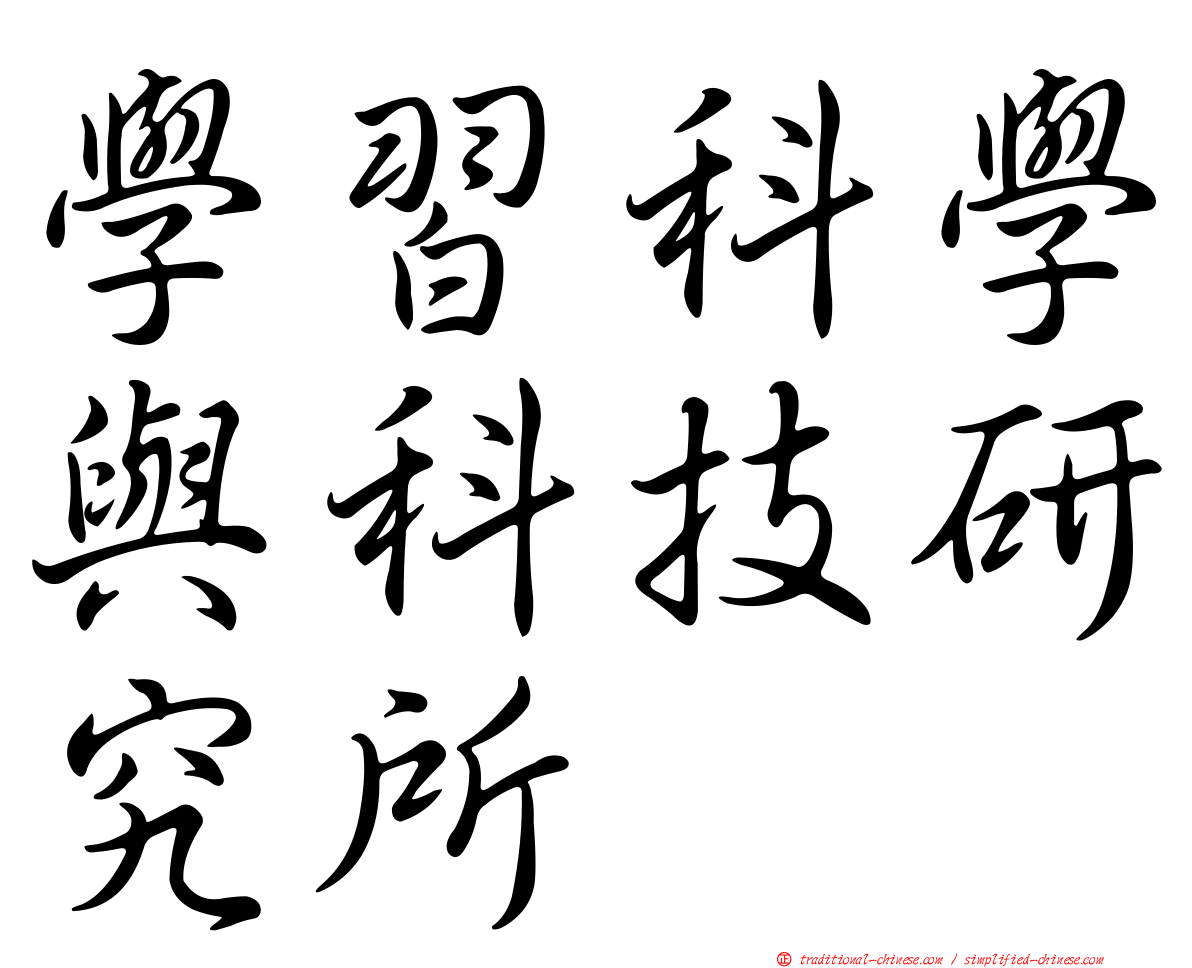 學習科學
與科技研
究所
㊣ traditional-chinese.com / simplified-chinese.com